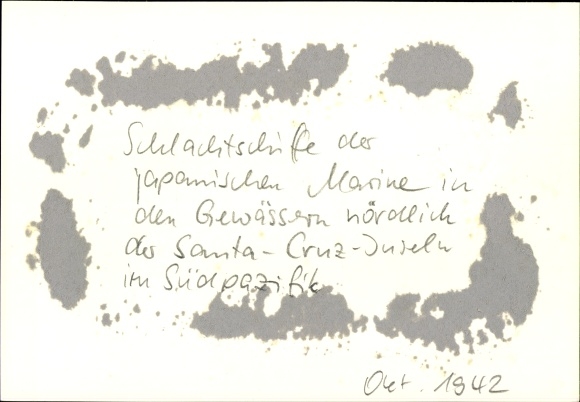 Schlachtschiffe der
japanischen Marine in
den Gewässern nördlich
der Santa-Cruz-Inseln
im Südpazifik
Okt. 1942